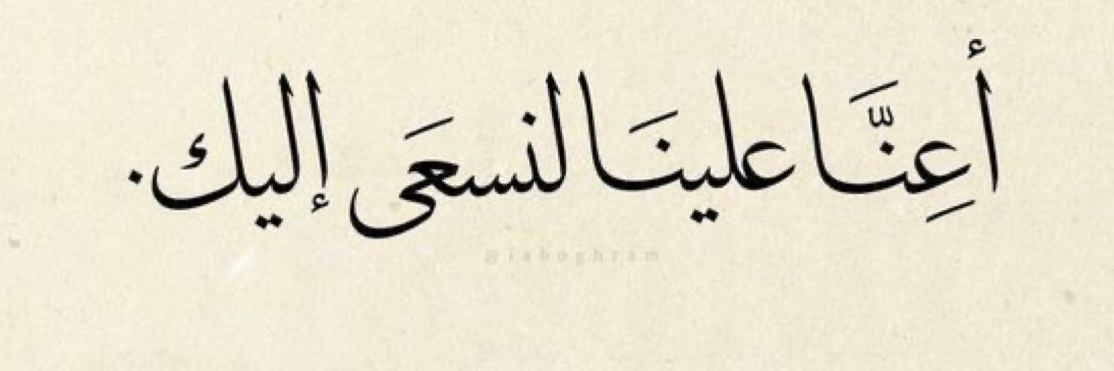 أَعِنَّا علينَا لنسعَى إليك.
@iaboghram